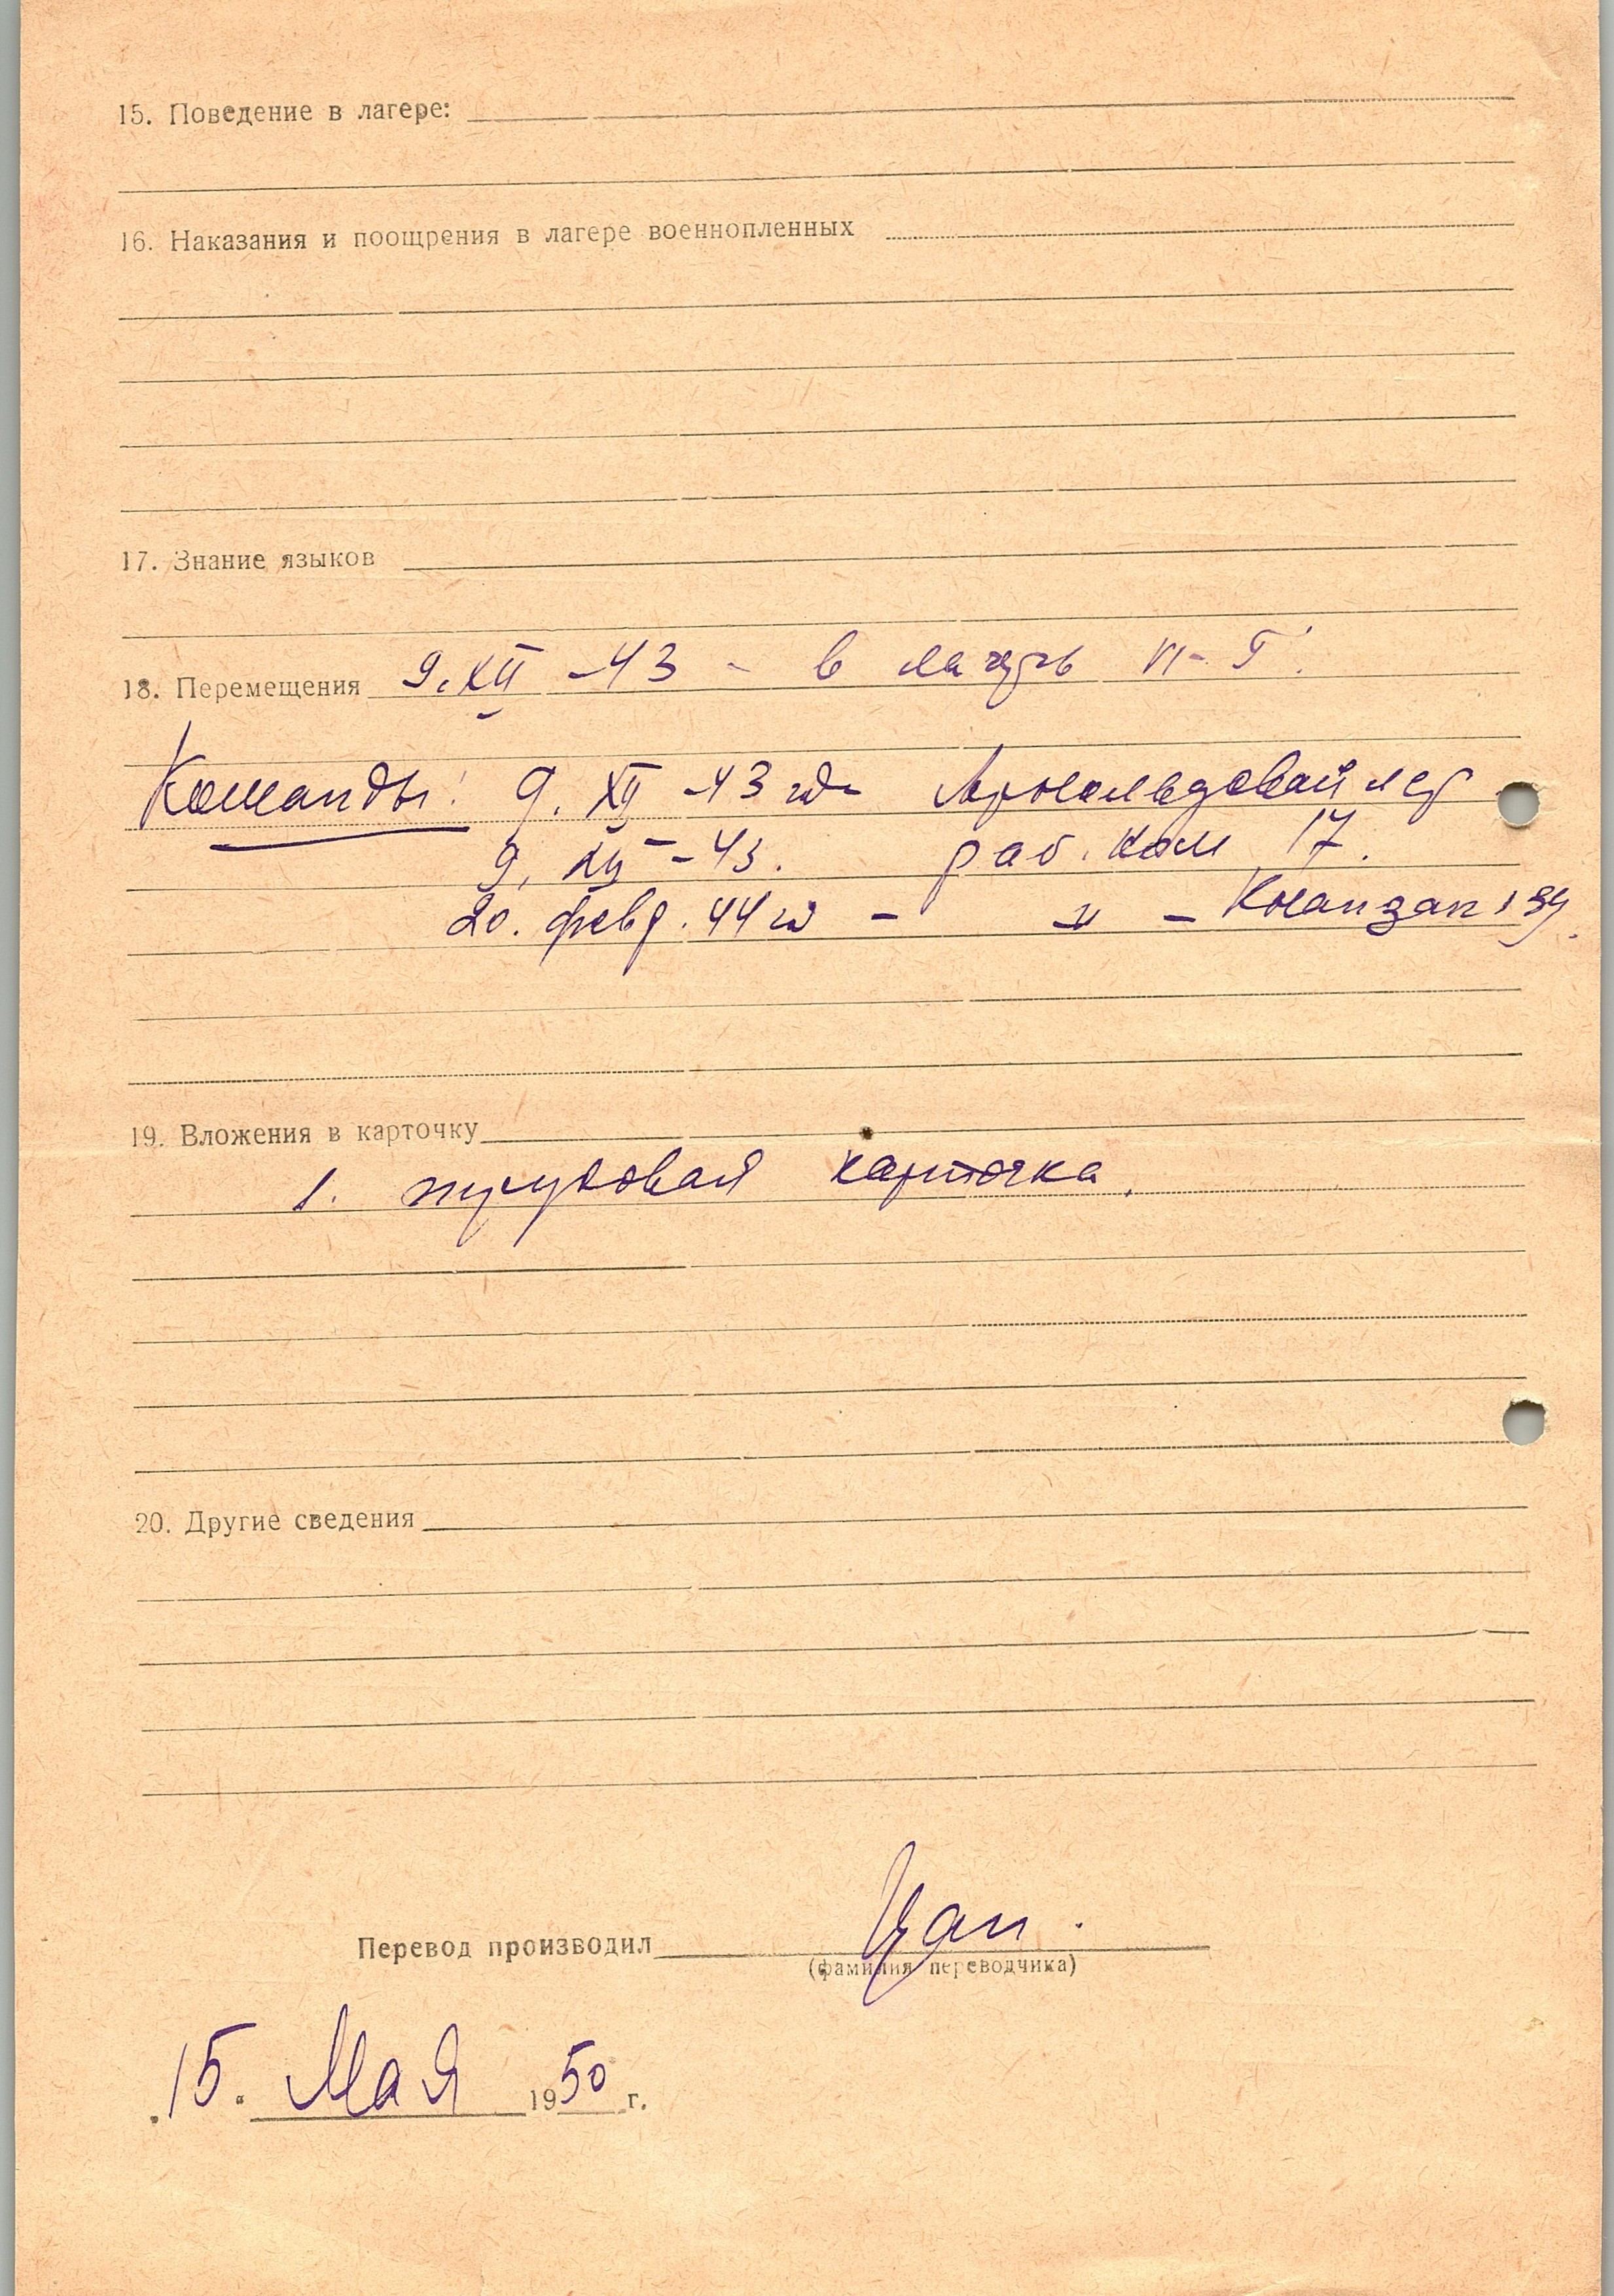 15. Поведение в лагере:
16. Наказания и поощрения в лагере военнопленных
17. Знание языков
18. Перемещения 9. XII -43 - в лагерь VI-Г.
Команды: 9. XII -43 год
9. XII -43. раб. ком 17.
20. февр. 44 год - " -
19. Вложения в карточку
1. трудовая карточка.
20. Другие сведения
Перевод производил Цан.
(фамилия переводчика)
15. Мая 1950 г.